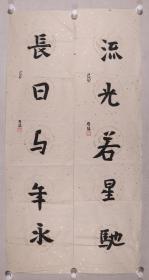 流光若星馳
長日与年永